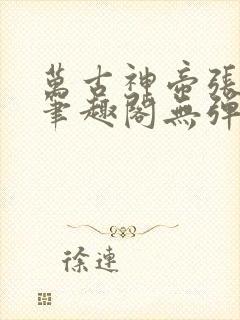 萬古神帝張
筆趣閣無彈
徐連